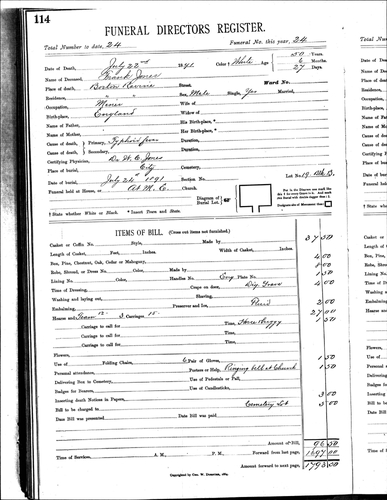 114
FUNERAL DIRECTORS REGISTER.
Total Number to date, 24 Funeral No. this year, 24
Date of Death, July 22nd 1891 Color † White Age 50 Years
Name of Deceased, Frank Jones 6 Months
Place of death, Boston Ravine Street, Ward No. 27 Days
Residence, " Sex, Male Single, Yes Married,
Occupation, Miner Wife of
Birth-place, England Widow of
Name of Father, His Birth-place, *
Name of Mother, Her Birth-place, *
Cause of death, Primary, Typhoid fever Duration,
Cause of death, Secondary, Duration,
Certifying Physician, Dr. W. C. Jones
Place of burial, City Cemetery,
Date of burial, July 24th 1891 Section No. Lot No. 19 Blk B.
Funeral held at House, or At M. C. Diagram of Burial Lot.
† State whether White or Black. * Insert Town and State.
ITEMS OF BILL. (Cross out items not furnished.)
Casket or Coffin No. Style, Made by 37 50
Length of Casket, Feet, Inches. Width of Casket, Inches.
Box, Pine, Chestnut, Oak, Cedar or Mahogany, 4 00
Robe, Shroud, or Dress No. Made by 8 00
Lining No. Color, Handles No. Eng. Plate No. 1 50
Time of Dressing, Crape on door, Dig Grave 4 00
Washing and laying out, Shaving,
Embalming, Preserver and Ice, Paid 2 00
Hearse and Team 12. 3 Carriages 15. 27 00
Carriage to call for Time, Horse Buggy 1 50
Carriage to call for Time,
Carriage to call for Time,
Carriage to call for Time,
Flowers,
Use of Folding Chairs, 6 Pair of Gloves, 1 50
Personal attendance, Porters or Help, Ringing bell at Church 1 50
Delivering Box to Cemetery, Use of Pedestals or Pall,
Badges for Bearers, Use of Candlesticks,
Inserting death Notices in Papers,
Bill to be charged to Cemetery Lot 5 00
Date Bill was presented Date Bill was paid
Amount of Bill, 96 50
Time of Services, A. M., P. M. Forward from last page,
Amount forward to next page,